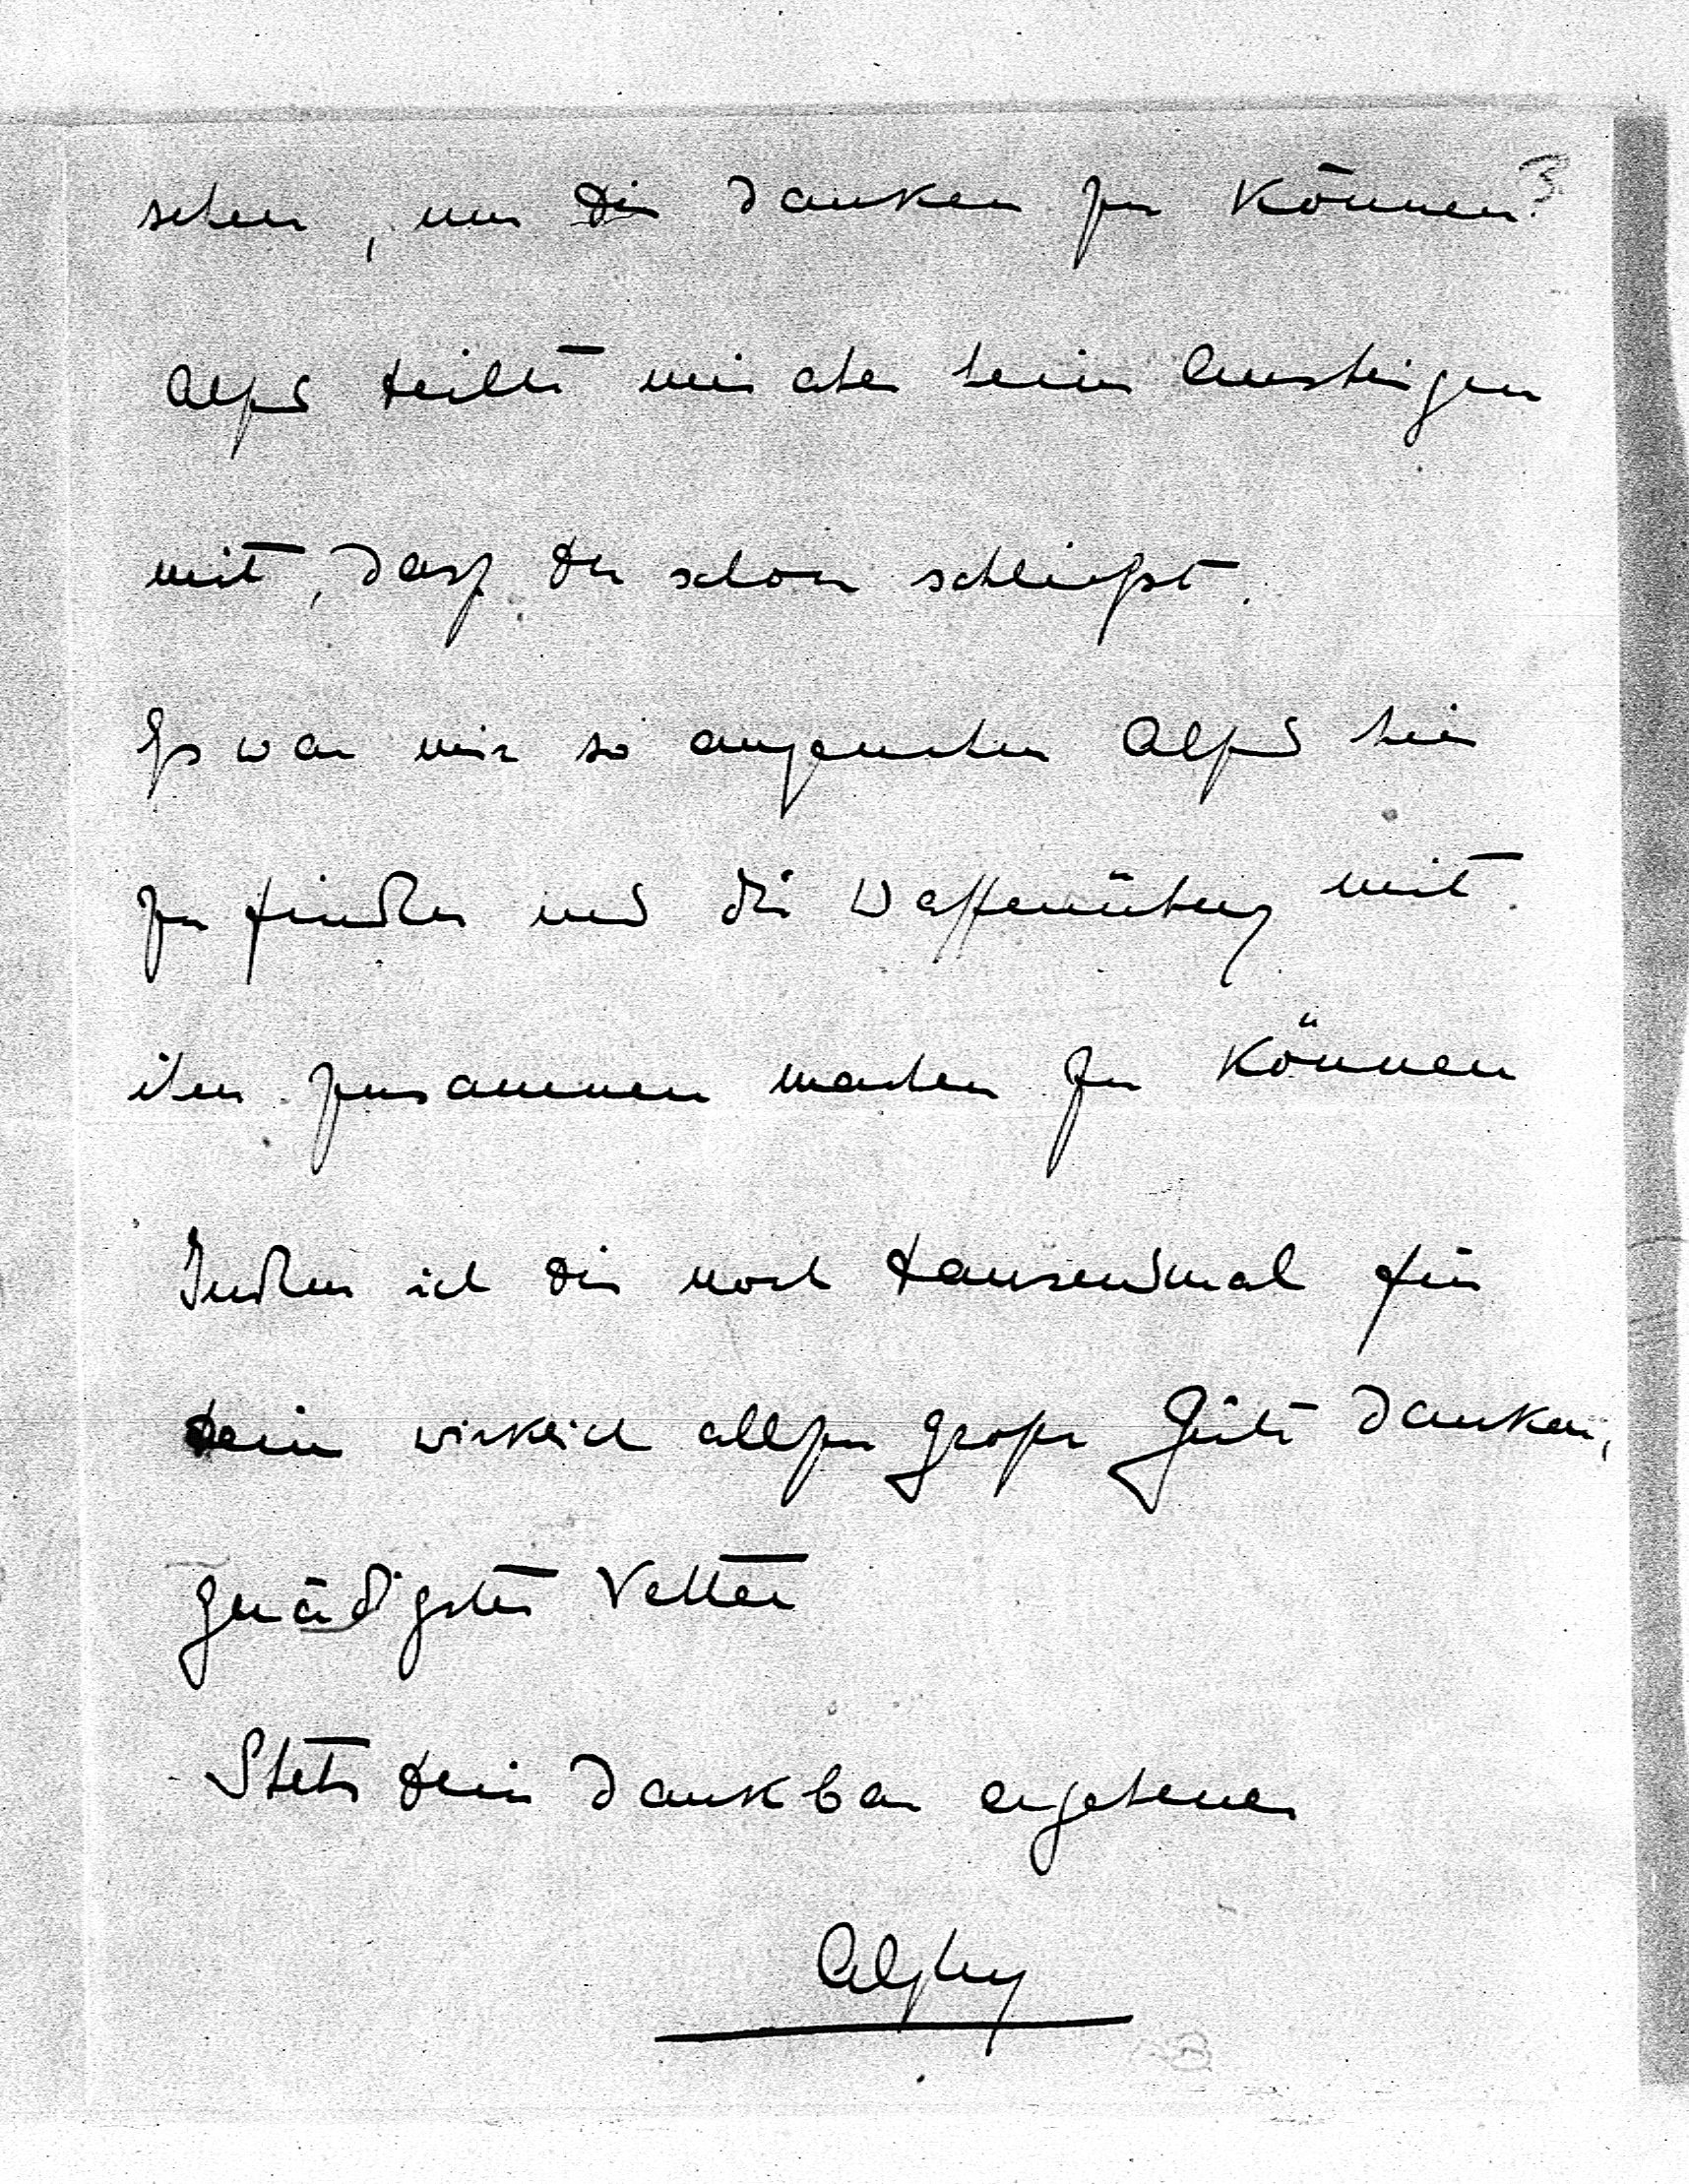 sehen, um Dir danken zu können?
teilte mir aber beim Aussteigen
mit, dass Du schon schliefst.
Es war mir so angenehm hier
zu finden und die Waffenübung mit
ihm zusammen machen zu können
Indem ich Dir noch tausendmal für
Dein wirklich allzu große Güte danken,
gnädigster Vetter
Stets Dein dankbar ergebener